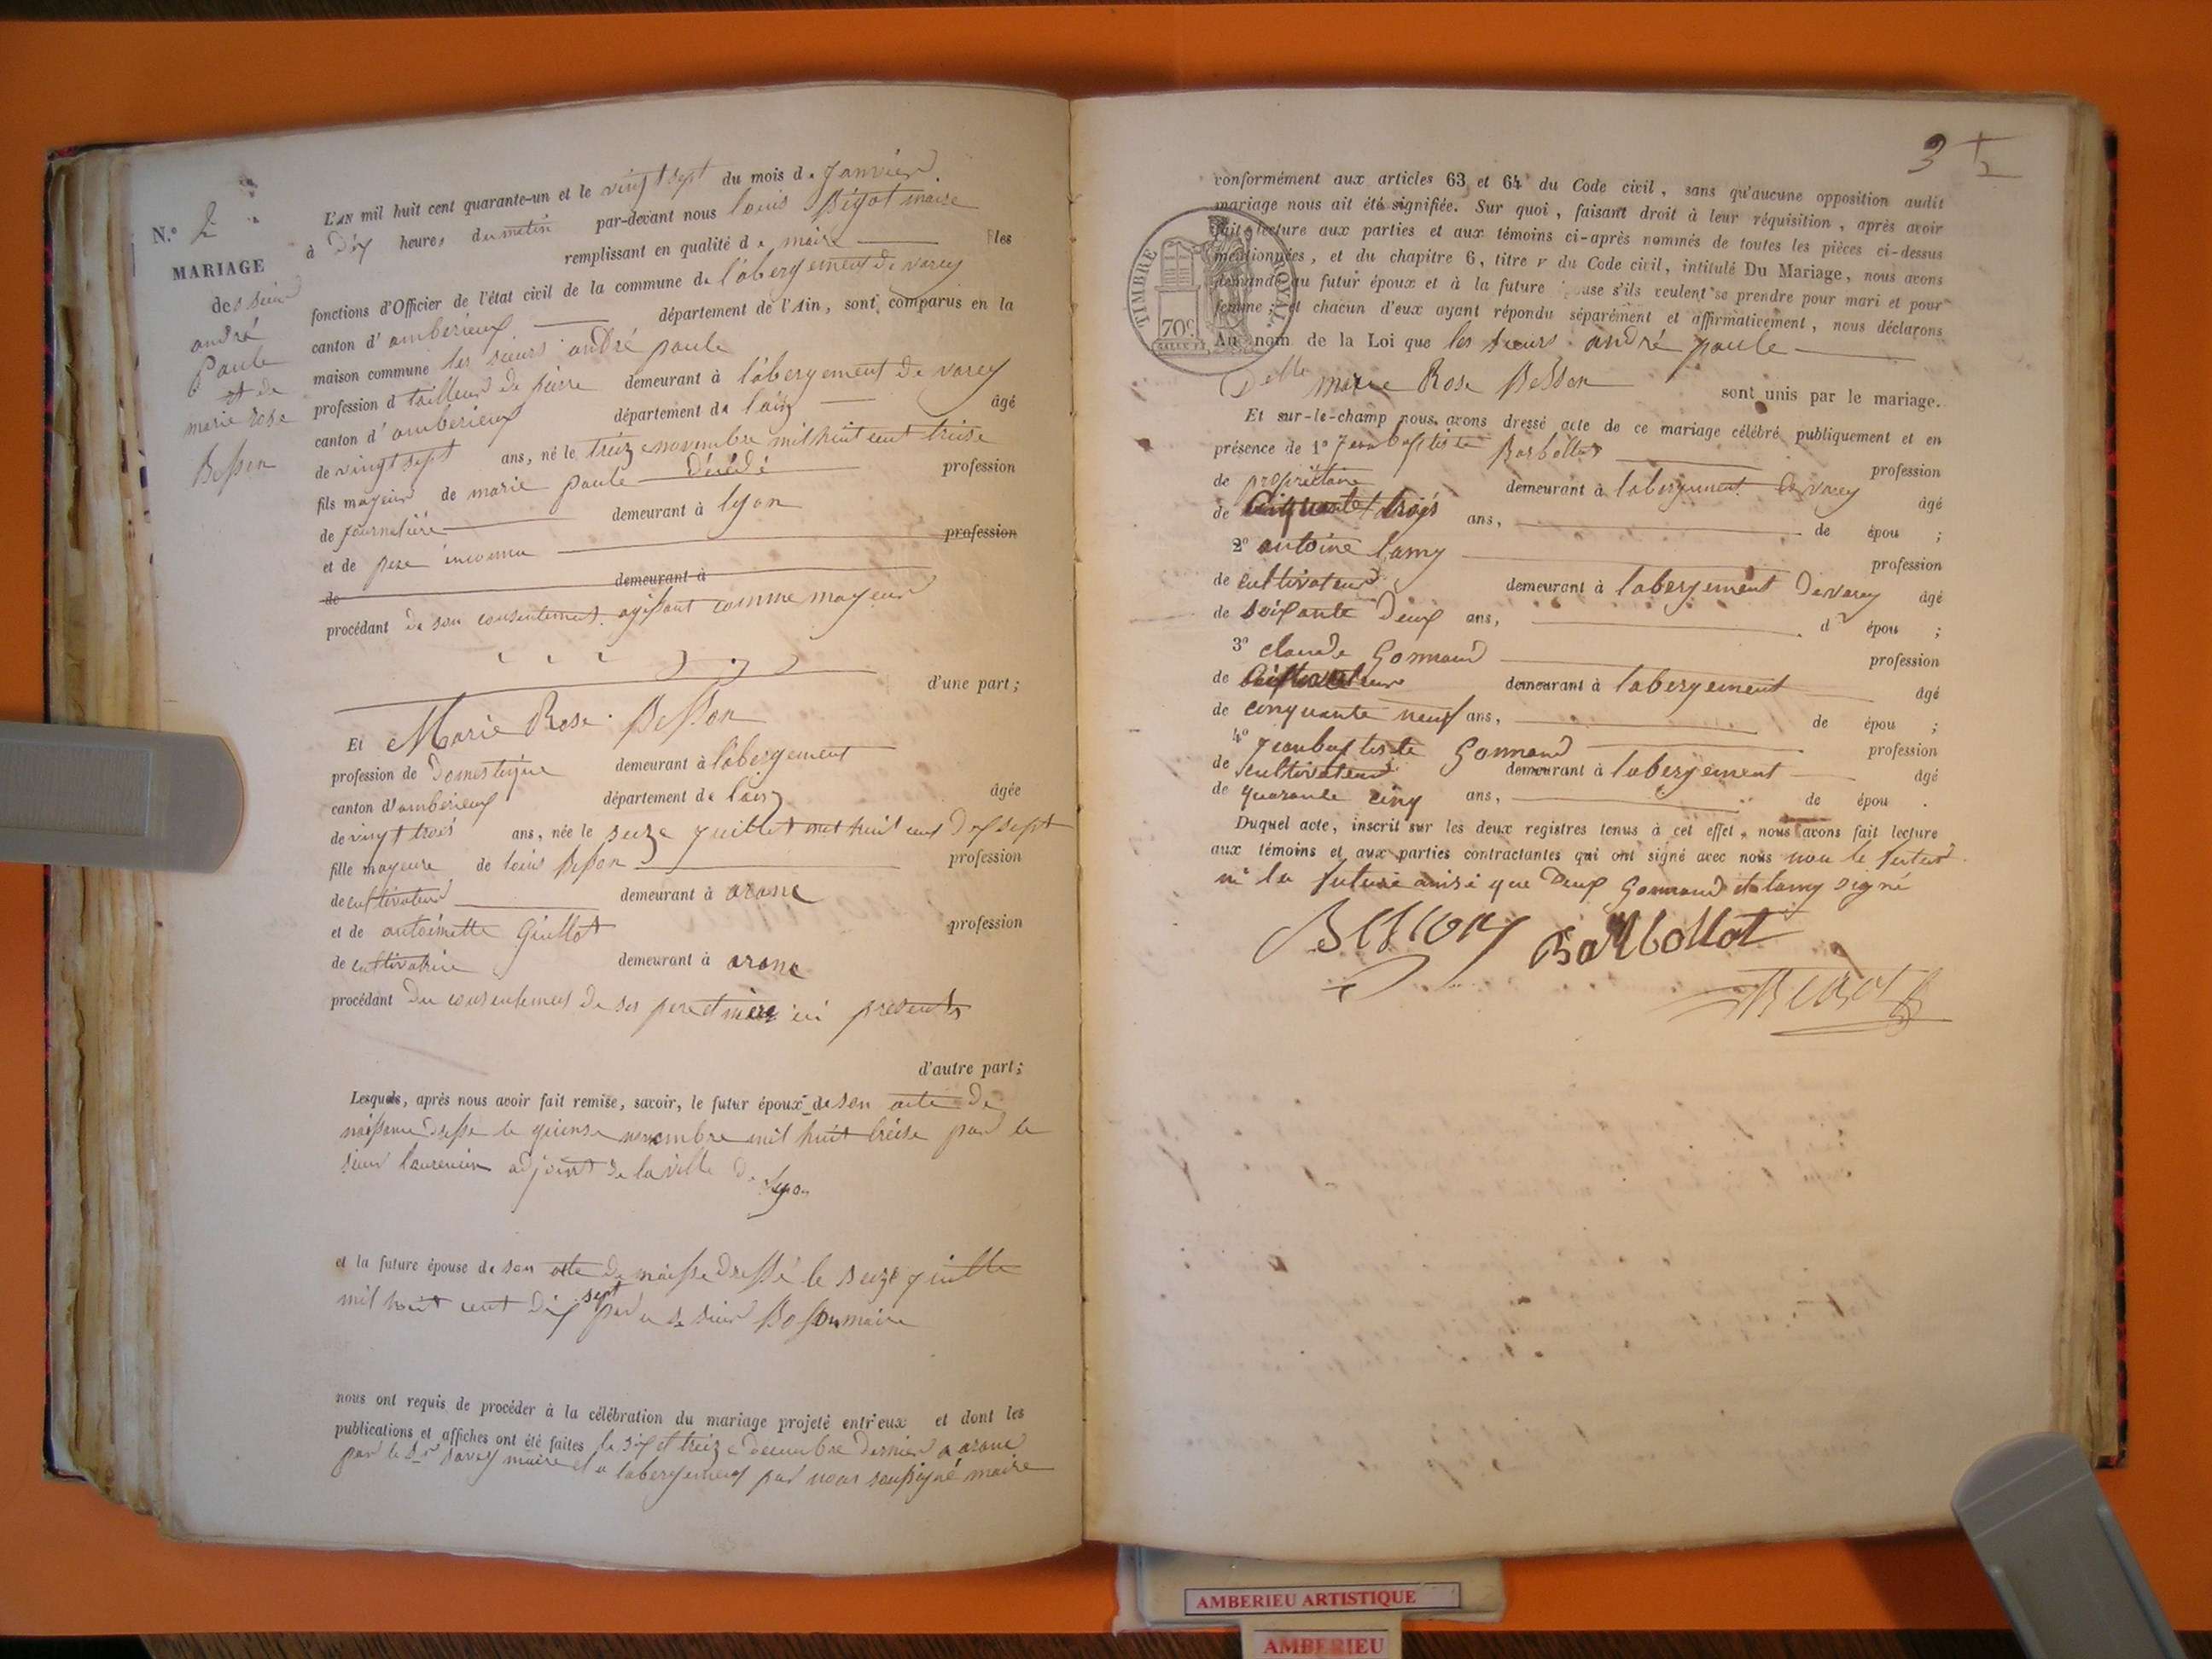 N.º 2
MARIAGE
des sieur
andré
Paule
et de
marie rose
Besson
L'AN mil huit cent quarante-un et le vingt sept du mois de Janvier
à Dix heures du matin par-devant nous louis Bégot maire
remplissant en qualité de maire les
fonctions d'Officier de l'état civil de la commune de l'abergement de varey
canton d'amberieux département de l'Ain, sont comparus en la
maison commune les sieurs andré paule
profession de tailleur de pierre demeurant à l'abergement de varey
canton d'amberieux département de l'ain âgé
de vingt sept ans, né le treize novembre mil huit cent treise
fils mayeur de marie paule décédé profession
de journalière demeurant à lyon
et de pere inconnu profession
de demeurant à
procédant de son consentement agissant comme mayeur
d'une part;
Et Marie Rose Besson
profession de Domestique demeurant à l'abergement
canton d'amberieux département de l'ain âgée
de vingt trois ans, née le seize juillet mil huit cent dix sept
fille mayeure de louis Besson profession
de cultivateur demeurant à aranc
et de antoinette Guillot profession
de cultivatrice demeurant à aranc
procédant du consentement de ses pere et mère ici presents
d'autre part;
Lesquels, après nous avoir fait remise, savoir, le futur époux de son acte de
naissance dressé le quinse novembre mil huit treise par le
sieur laurencin adjoint de la ville de Lyon
et la future épouse de son acte de naisse dressé le seize juille
mil huit cent dix sept par le sieur Besson maire
nous ont requis de procéder à la célébration du mariage projeté entr'eux et dont les
publications et affiches ont été faites le six et treize decembre dernier a aranc
par le Sr Savey maire et a labergement par nous soussigné maire
3
conformément aux articles 63 et 64 du Code civil, sans qu'aucune opposition audit
mariage nous ait été signifiée. Sur quoi, faisant droit à leur réquisition, après avoir
fait lecture aux parties et aux témoins ci-après nommés de toutes les pièces ci-dessus
mentionnées, et du chapitre 6, titre v du Code civil, intitulé Du Mariage, nous avons
demandé au futur époux et à la future épouse s'ils veulent se prendre pour mari et pour
femme; et chacun d'eux ayant répondu séparément et affirmativement, nous déclarons
Au nom de la Loi que les sieurs andré paule
Delle marie Rose Besson sont unis par le mariage.
TIMBRE ROYAL
70c
Et sur-le-champ nous avons dressé acte de ce mariage célébré publiquement et en
présence de 1º Jean baptiste Barbollat profession
de propriétaire demeurant à labergement de varey âgé
de cinquante trois ans, de épou ;
2º antoine lamy profession
de cultivateur demeurant à labergement de varey âgé
de soixante Deux ans, d épou ;
3º claude Gonnand profession
de cultivateur demeurant à labergement âgé
de cinquante neuf ans, de épou ;
4º jean baptiste Gonnand profession
de cultivateur demeurant à labergement âgé
de quarante cinq ans, de épou .
Duquel acte, inscrit sur les deux registres tenus à cet effet, nous avons fait lecture
aux témoins et aux parties contractantes qui ont signé avec nous non le futur
ni la future ainsi que Deux Gonnand et lamy signé
Besson Barbollat
Begot
AMBERIEU ARTISTIQUE
AMBERIEU